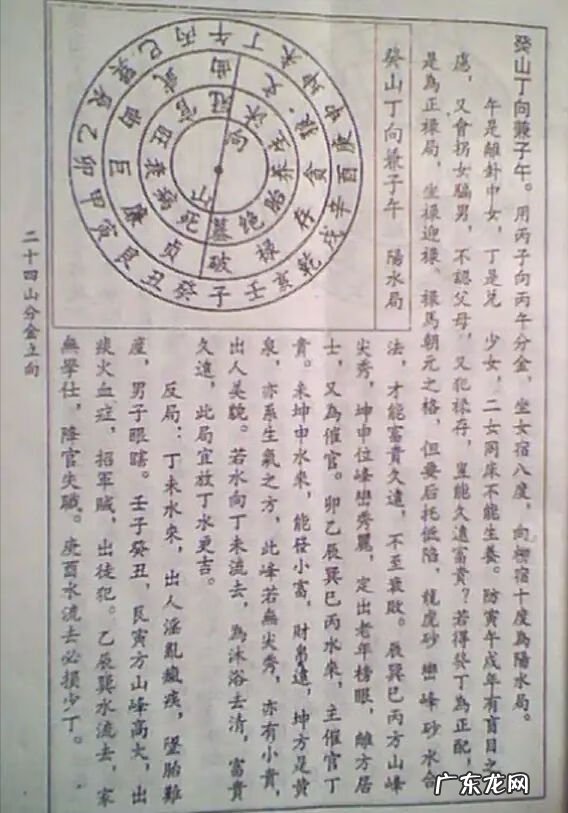 癸山丁向兼子午。用丙子向丙午分金,坐女宿八度,向柳宿十度為陽水局。
午是離卦中女,丁是兌 少女,二女同床不能生養。防寅午戌年有盲目之
慮,又會拐女騙男,不認父母,又犯祿存,豈能久遠富貴?若得癸丁為正配,
是為正祿局,坐祿迎祿,祿馬朝元之格,但要后托低陷,龍虎砂 巒峰砂水合
癸山丁向兼子午 陽水局
法,才能富貴久遠,不至衰敗。辰巽巳丙方山峰
尖秀,坤申位峰巒秀麗,定出老年榜眼,離方居
士,又為催官。卯乙辰巽巳丙水來,主催官丁
貴。未坤申水來,能發小富,財帛遠,坤方是黃
泉,亦系生氣之方,此峰若無尖秀,亦有小貴,
出人美貌。若水向丁未流去,為沐浴去清,富貴
久遠,此局宜放丁水更吉。
反局:丁未水來,出人淫亂瘋痰,墜胎難
產,男子眼瞎。壬子癸丑,艮寅方山峰高大,出
痰火血症,招軍賊,出徒犯。乙辰巽水流去,家
無學仕,降官失職。庚酉水流去必損少丁。
丁午丙巳巽辰乙卯甲寅艮丑癸子壬亥乾戌辛酉庚申坤未
曲武曲巨廉貞破祿存貪狼文
冠官旺衰病死墓绝胎养生沐
向
山
二十四山分金立向
广东龙网